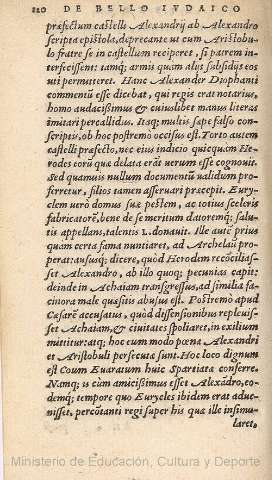 820 DE BELLO IVDAICO
præfectum castelli Alexandrij ab Alexandro
scripta epistola, deprecante ut cum Aristobu-
lo fratre se in castellum reciperet, si patrem in-
terfecissent: tamq; armis quàm alijs subsidijs eos
uti permitteret. Hanc Alexander Diophanti
commentũ esse dicebat, qui regis erat notarius,
homo audacissimus & cuiuslibet manus literas
imitari percallidus. Itaq; multis sæpe falso con-
scriptis, ob hoc postremò occisus est. Torto autem
castelli præfecto, nec eius indicio quicquam He-
rodes eorũ quæ delata erãt uerum esse cognouit.
Sed quamuis nullum documentũ ualidum pro-
ferretur, filios tamen asseruari præcepit. Eury-
clem uerò domus suæ pestem, ac totius sceleris
fabricatorẽ, bene de se meritum datoremq; salu-
tis appellans, talentis L. donauit. Ille autẽ prius
quam certa fama nuntiaret, ad Archelaũ pro-
perat: aususq; dicere, quòd Herodem reconciliàs-
set Alexandro, ab illo quoq; pecunias capit:
deinde in Achaiam transgressus, ad similia fa-
cinora malè quæsitis abusus est. Postremò apud
Cæsarẽ accusatus, quòd dissensionibus repleuis-
set Achaiam, & ciuitates spoliaret, in exilium
mittitur: atq; hoc eum modo pœna Alexandri
et Aristobuli persecuta sunt. Hoc loco dignum
est Coum Euaratum huic Spartiatæ conferre.
Namq; is cùm amicissimus esset Alexãdro, eo-
demq; tempore quo Eurycles ibidem erat adue-
nisset, percõtanti regi super his quæ ille insimu-
laret,
Ministerio de Educación, Cultura y Deporte